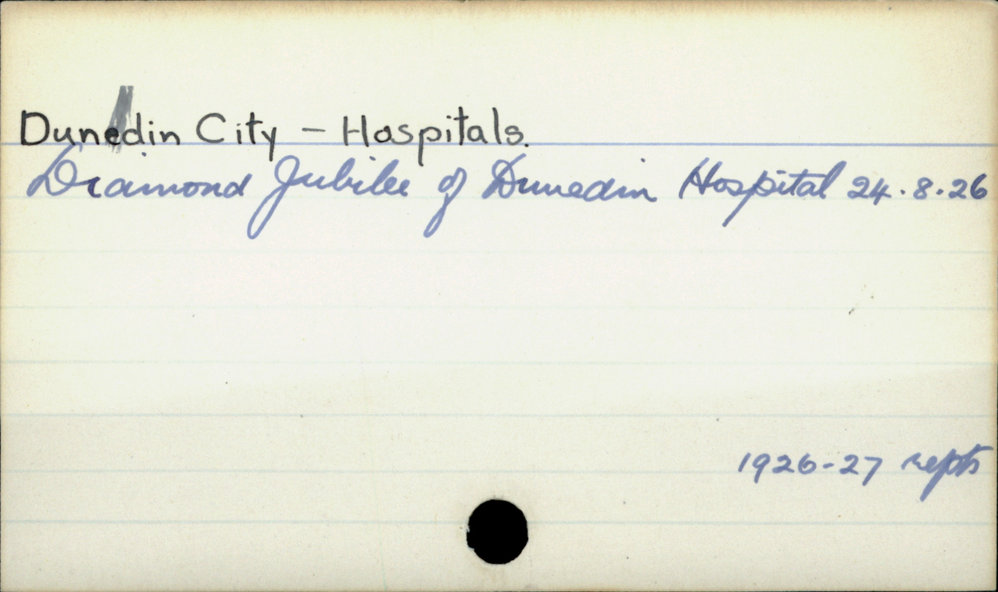 Dunedin City - Hospitals.
Diamond Jubilee of Dunedin Hospital 24.8.26
1926-27 repts